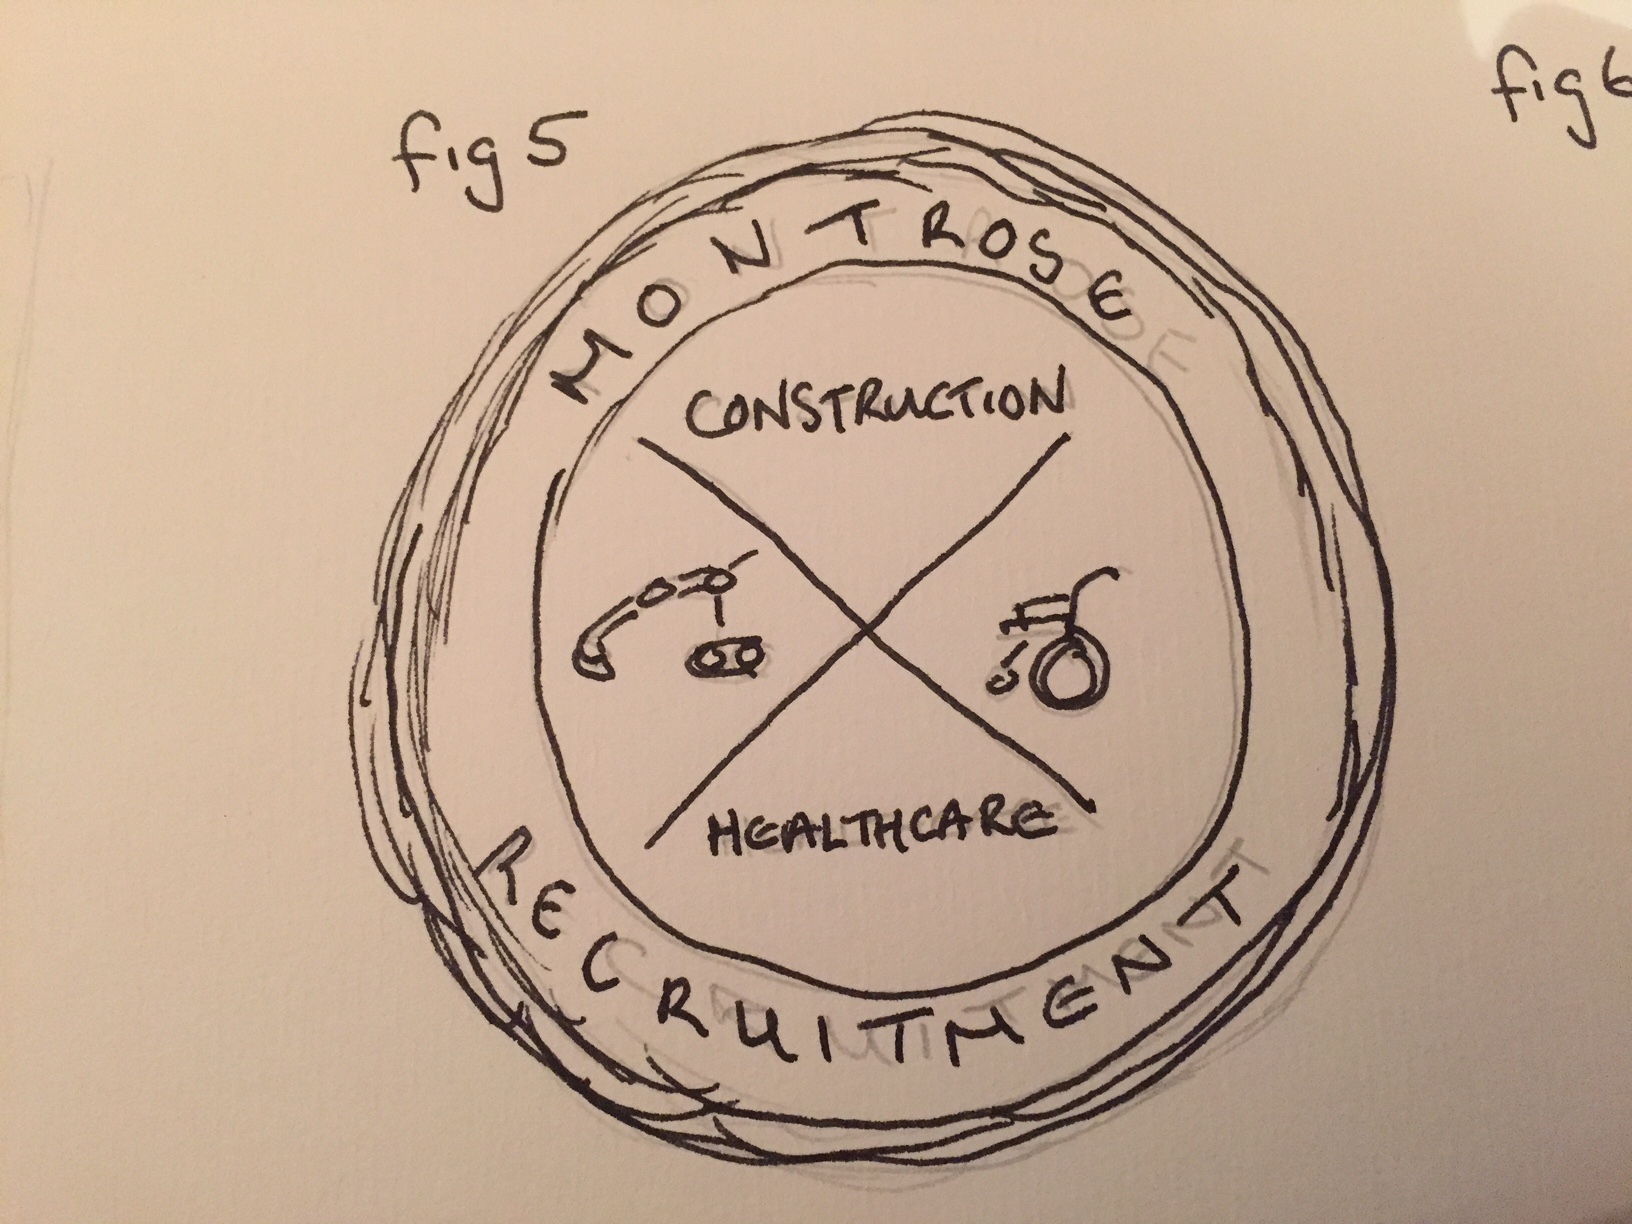 fig 5
fig 6
MONTROSE
CONSTRUCTION
HEALTHCARE
RECRUITMENT